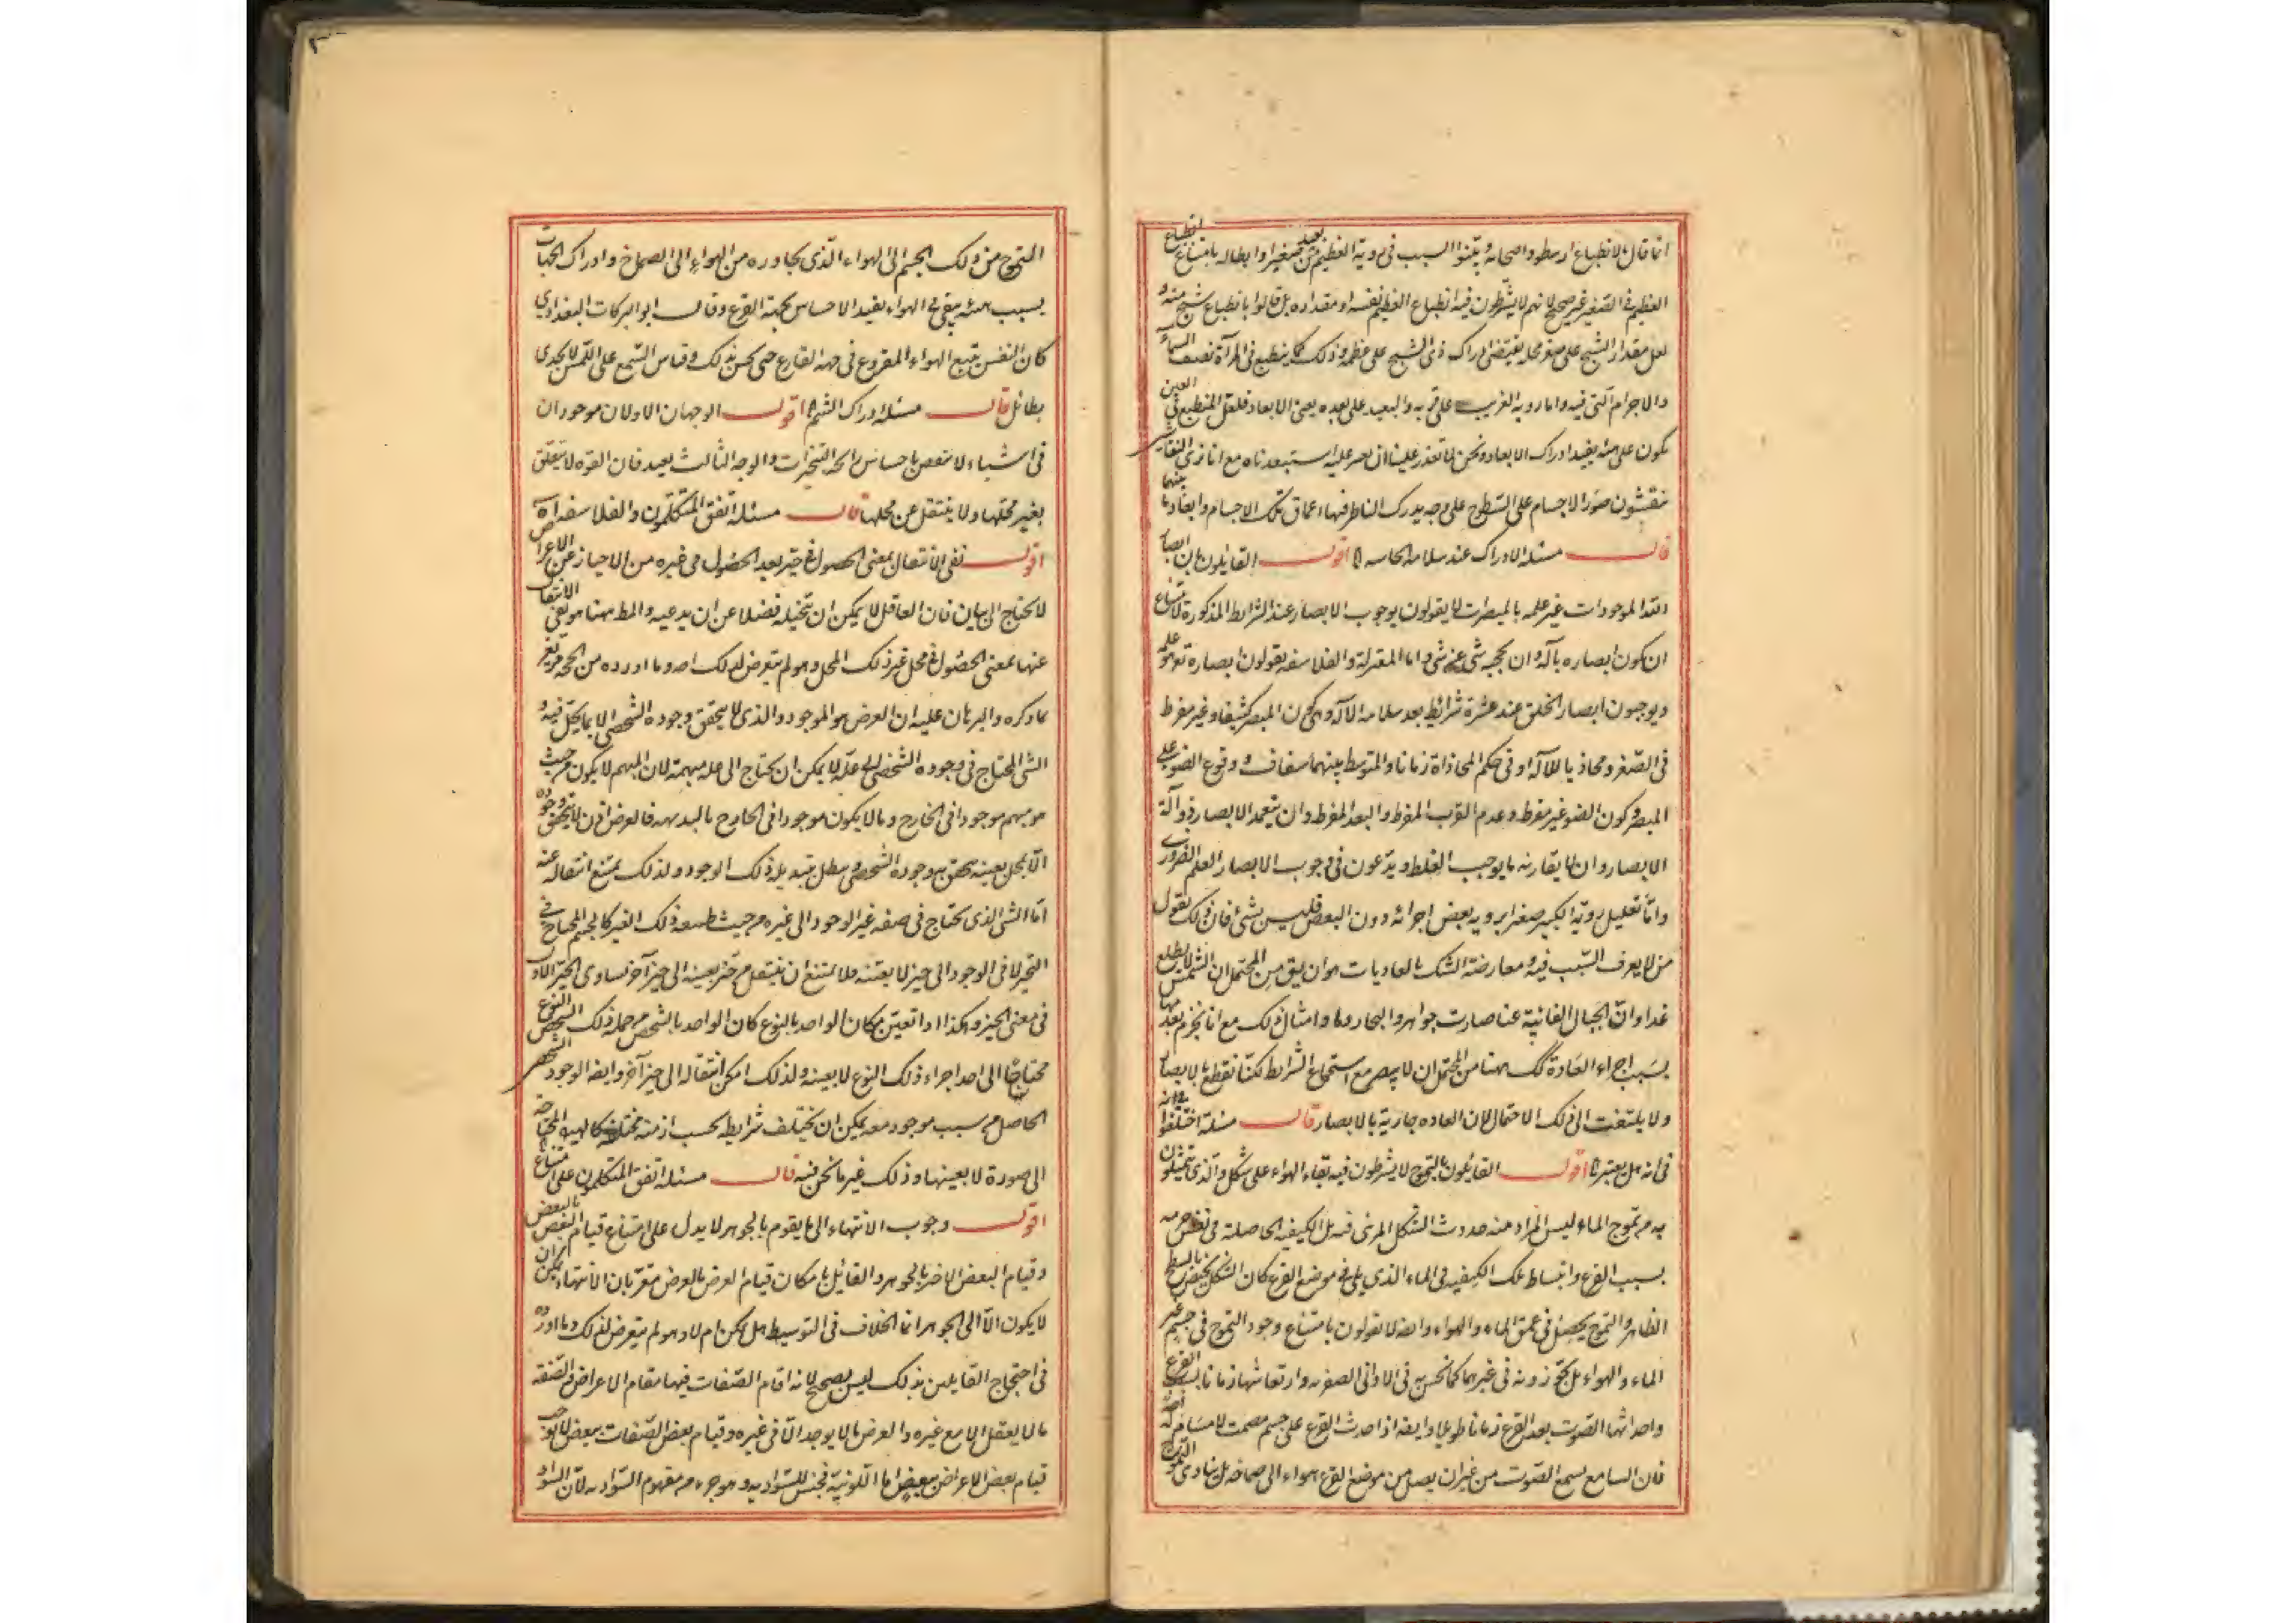 انما قال بالانطباع ارسطو واصحابه وبينوا السبب في روية العظيم من بعيد صغيرا وابطاله بامتناع انطباع
العظيم في الصغير غير صحيح لانهم لا يشترطون فيه انطباع العظيم نفسه او مقداره بل قالوا بانطباع شبح منه و
لعل مقدار الشبح على صغر محله يقتضى ادراك ذى الشبح على عظمه وذلك كما ينطبع في المرآة نصف السماء
والاجرام التى فيه واما روية القريب على قربه والبعيد على بعده يعنى الابعاد فلعل المنطبع في العين
يكون على هيئة يفيد ادراك الابعاد ونحن لما تعذر علينا ان نعبر عليه استبعدناه مع انا نرى النقاشين
ينقشون صور الاجسام على السطوح على وجه يدرك الناظر فيها اعماق تلك الاجسام وابعاد ما بينها
قال مسئله الادراك عند سلامة الحاسه اقول القايلون بان ابصار
الموجودات غير علمه بالمبصرات لا يقولون بوجوب الابصار عند الشرايط المذكورة لامتناع
ان يكون ابصاره بآلة وان يحجبه شى عن شى واما المعتزلة والفلاسفه يقولون ابصاره تعالى هو علمه
ويوجبون ابصار الخلق عند عشرة شرائط بعد سلامة الآله وهى كون المبصر كثيفا وغير مفرط
في الصغر ومحاذيا للآلة او في حكم المحاذاة زمانا والمتوسط بينهما شفاف ووقوع الضوء على
المبصر وكون الضوء غير مفرط وعدم القرب المفرط والبعد المفرط وان يتعمد الابصار ذو آلة
الابصار وان لا يقارنه ما يوجب الغلط ويدعون في وجوب الابصار العلم الضرورى
واما تعليل روية الكبير صغيرا بروية بعض اجزائه دون البعض فليس بشئ فان ذلك يقول
من لا يعرف السبب فيه ومعارضة الشك بالعاديات هو ان يق من المحتمل ان الشمس لا يطلع
غدا وان الجبال الغائبة عنا صارت جواهر والبحار دما وامثال ذلك مع انا نجزم بعدمها
بسبب اجراء العادة كك ههنا من المحتمل ان لا يبصر مع استجماع الشرايط لكنا نقطع بالابصار
ولا يلتفت الى ذلك الاحتمال لان العاده جارية بالابصار قال مسئلة اختلفوا
في انه هل يعتبر اقول القائلون بالتموج لا يشترطون فيه بقاء الهواء على شكل والذى يتمثلون
به من تموج الماء ليس المراد منه حدوث الشكل المرئى فيه بل الكيفية الحاصلة في بعض منه
بسبب القرع وانبساط تلك الكيفية في الماء الذى يلى موضع القرع كان الشكل يختص بالسطح
الظاهر والتموج يحصل في عمق الماء والهواء وايضا لا يقولون بامتناع وجود التموج في جسم غير
الماء والهواء بل يجوزونه في غيرهما كما نحس به في الاوانى الصفريه وارتعاشها زمانا بسبب القرع
واحداثها الصوت بعد القرع زمانا طويلا وايضا اذا حدث القرع على جسم مصمت لا مسام له
فان السامع يسمع الصوت من غير ان يصل من موضع القرع هواء الى صماخه بل يتادى التموج
التموج من ذلك الجسم الى الهواء الذى يجاوره من الهواء الى الصماخ وادراك الجهات
بسبب هيئة يبقى في الهواء يفيد الاحساس بجهة القرع وقال ابو البركات البغدادى
كان النفس تتبع الهواء المقروع في جهة القارع حتى يحس بذلك وقاس السمع على اللمس لا يجدى
بطائل قال مسئله ادراك الشم اقول الوجهان الاولان موجودان
في اشياء لا تنقص باحساس رائحة التبخرات والوجه الثالث بعيد فان القوه لا يتعلق
بغير محلها ولا ينتقل عن محلها قال مسئله اتفق المتكلمون والفلاسفه
اقول نفى الانتقال بمعنى الحصول في حيز بعد الحصول في غيره من الاحياز عن الاعراض
لا يحتاج الى بيان فان العاقل لا يمكن ان يتخيله فضلا عن ان يدعيه والمط ههنا هو نفى الانتقال
عنها بمعنى الحصول في محل غير ذلك المحل وهو لم يتعرض لذلك اصلا وما اورده من الحجة
كما ذكره والبرهان عليه ان العرض هو الموجود والذى لا يتحقق وجوده الشخصى الا بما يحل فيه و
الشى المحتاج في وجوده الشخصى الى علة لا يمكن ان يحتاج الى علة مبهمة لان المبهم لا يكون من حيث
هو مبهم موجودا في الخارج وما لا يكون موجودا في الخارج بالبديهه فالعرض اذن لا يتحقق وجوده
الا بمحل بعينه يتحقق به وجوده الشخصى ويبطل بتبديل ذلك الوجود ولذلك يمتنع انتقاله عنه
اما الشى الذى يحتاج في صفة غير الوجود الى غيره من حيث طبيعة ذلك الغير كالجسم المحتاج في
التحيز لا في الوجود الى حيز لا بعينه فلا يمتنع ان ينتقل من حيز بعينه الى حيز آخر يساوى الحيز الاول
في معنى الحيز وهكذا اذا تعين مكان الواحد بالنوع كان الواحد بالشخص من جملة ذلك النوع
محتاجا الى احد اجزاء ذلك النوع لا بعينه ولذلك امكن انتقاله الى حيز آخر وايضا الوجود الشخصى
الحاصل من سبب موجود معه يمكن ان يختلف شرايطه بحسب ازمنة مختلفة كالهيولى المحتاجة
الى صورة لا بعينها وذلك غير ما نحن فيه قال مسئله اتفق المتكلمون على امتناع
اقول وجوب الانتهاء الى ما يقوم بالجوهر لا يدل على امتناع قيام البعض بالبعض
وقيام البعض الاخر بالجوهر والقائل بامكان قيام العرض بالعرض مقر بان الانتهاء
لا يكون الا الى الجوهر انما الخلاف في التوسيط هل يمكن ام لا وهو لم يتعرض لذلك وما اورده
في احتجاج القايلين بذلك ليس بصحيح لانه اقام الصفات فيها مقام الاعراض والصفة
ما لا يعقل الا مع غيره والعرض ما لا يوجد الا في غيره وقيام بعض الصفات ببعض لا يوجب
قيام بعض الاعراض ببعض اما اللونية فجنس للسوادية وهو جزء من مفهوم السوادية لان السواد